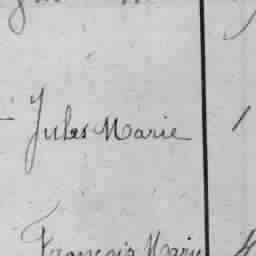 Jules Marie
François Marie